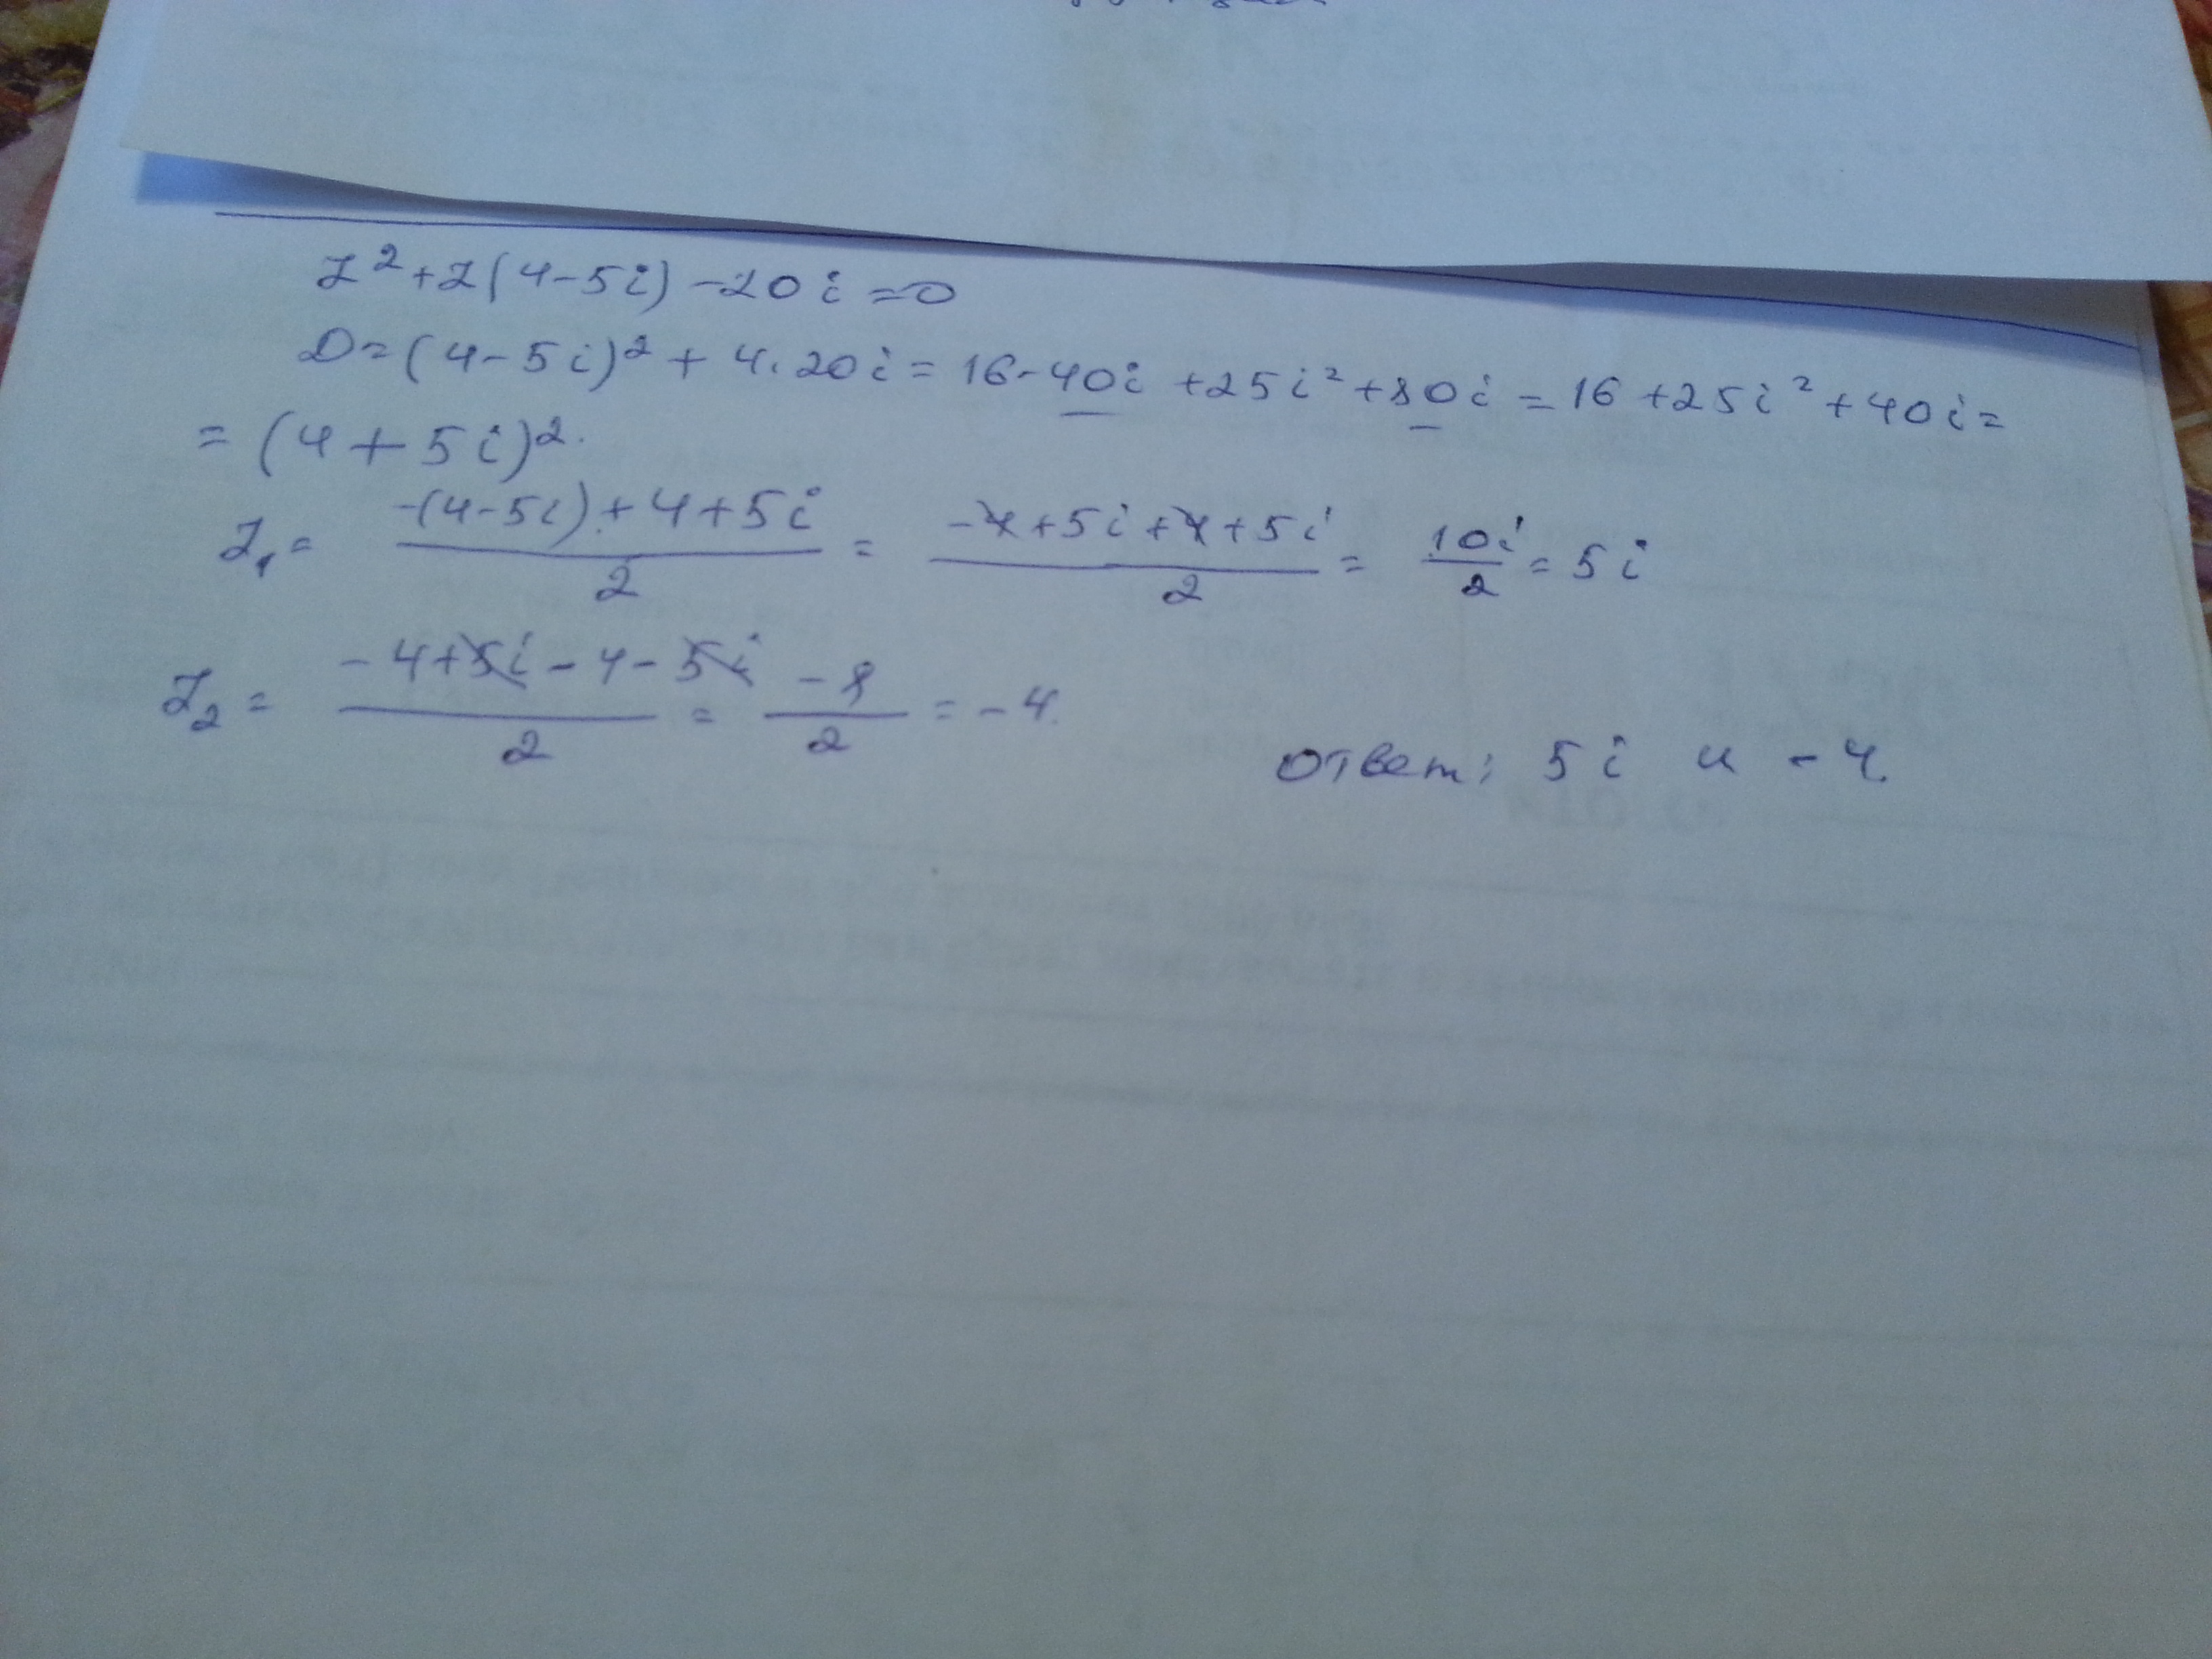 Z²+Z(4-5i)-20i=0
D=(4-5i)²+4·20i=16-40i+25i²+80i=16+25i²+40i=
=(4+5i)².
Z₁= (-(4-5i)+4+5i)/2 = (-4+5i+4+5i)/2 = 10i/2 = 5i
Z₂= (-4+5i-4-5i)/2 = -8/2 = -4.
Ответ: 5i и -4.